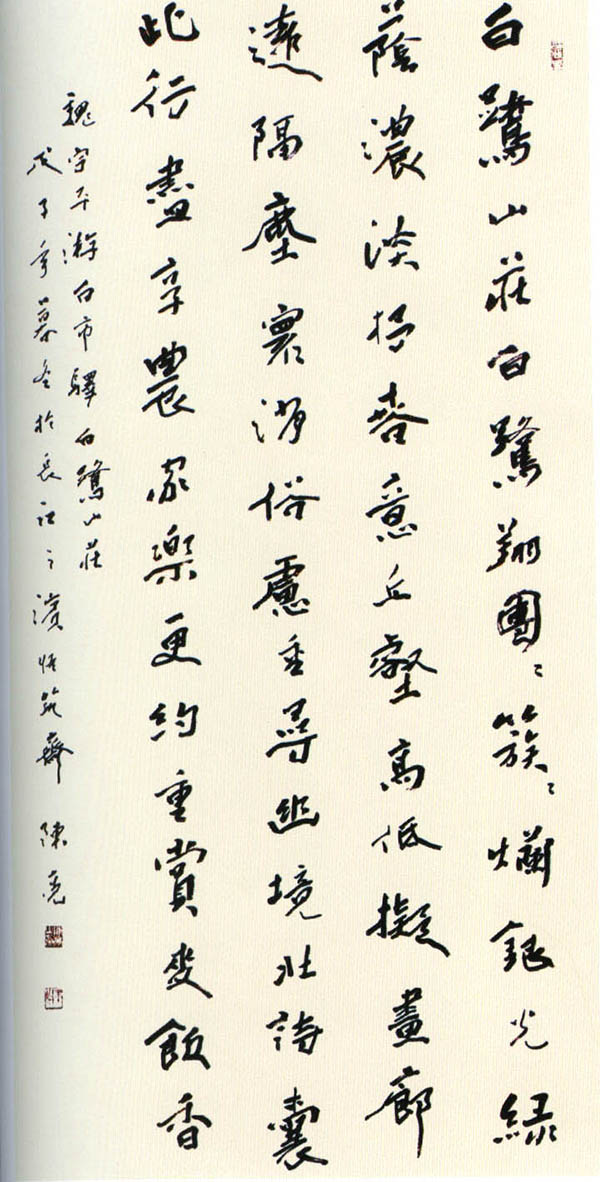 白鷺山莊白鷺翔團〻簇〻爛銀光綠
蔭濃淡招春意丘壑高低擬畫廊
遠隔塵寰消俗慮重尋幽境壯詩囊
此行盡享農家樂更約重賞麥飯香
魏宇平游白市驛白鷺山莊
戊子年暮冬於長江之濱悟筑齋 陳亮